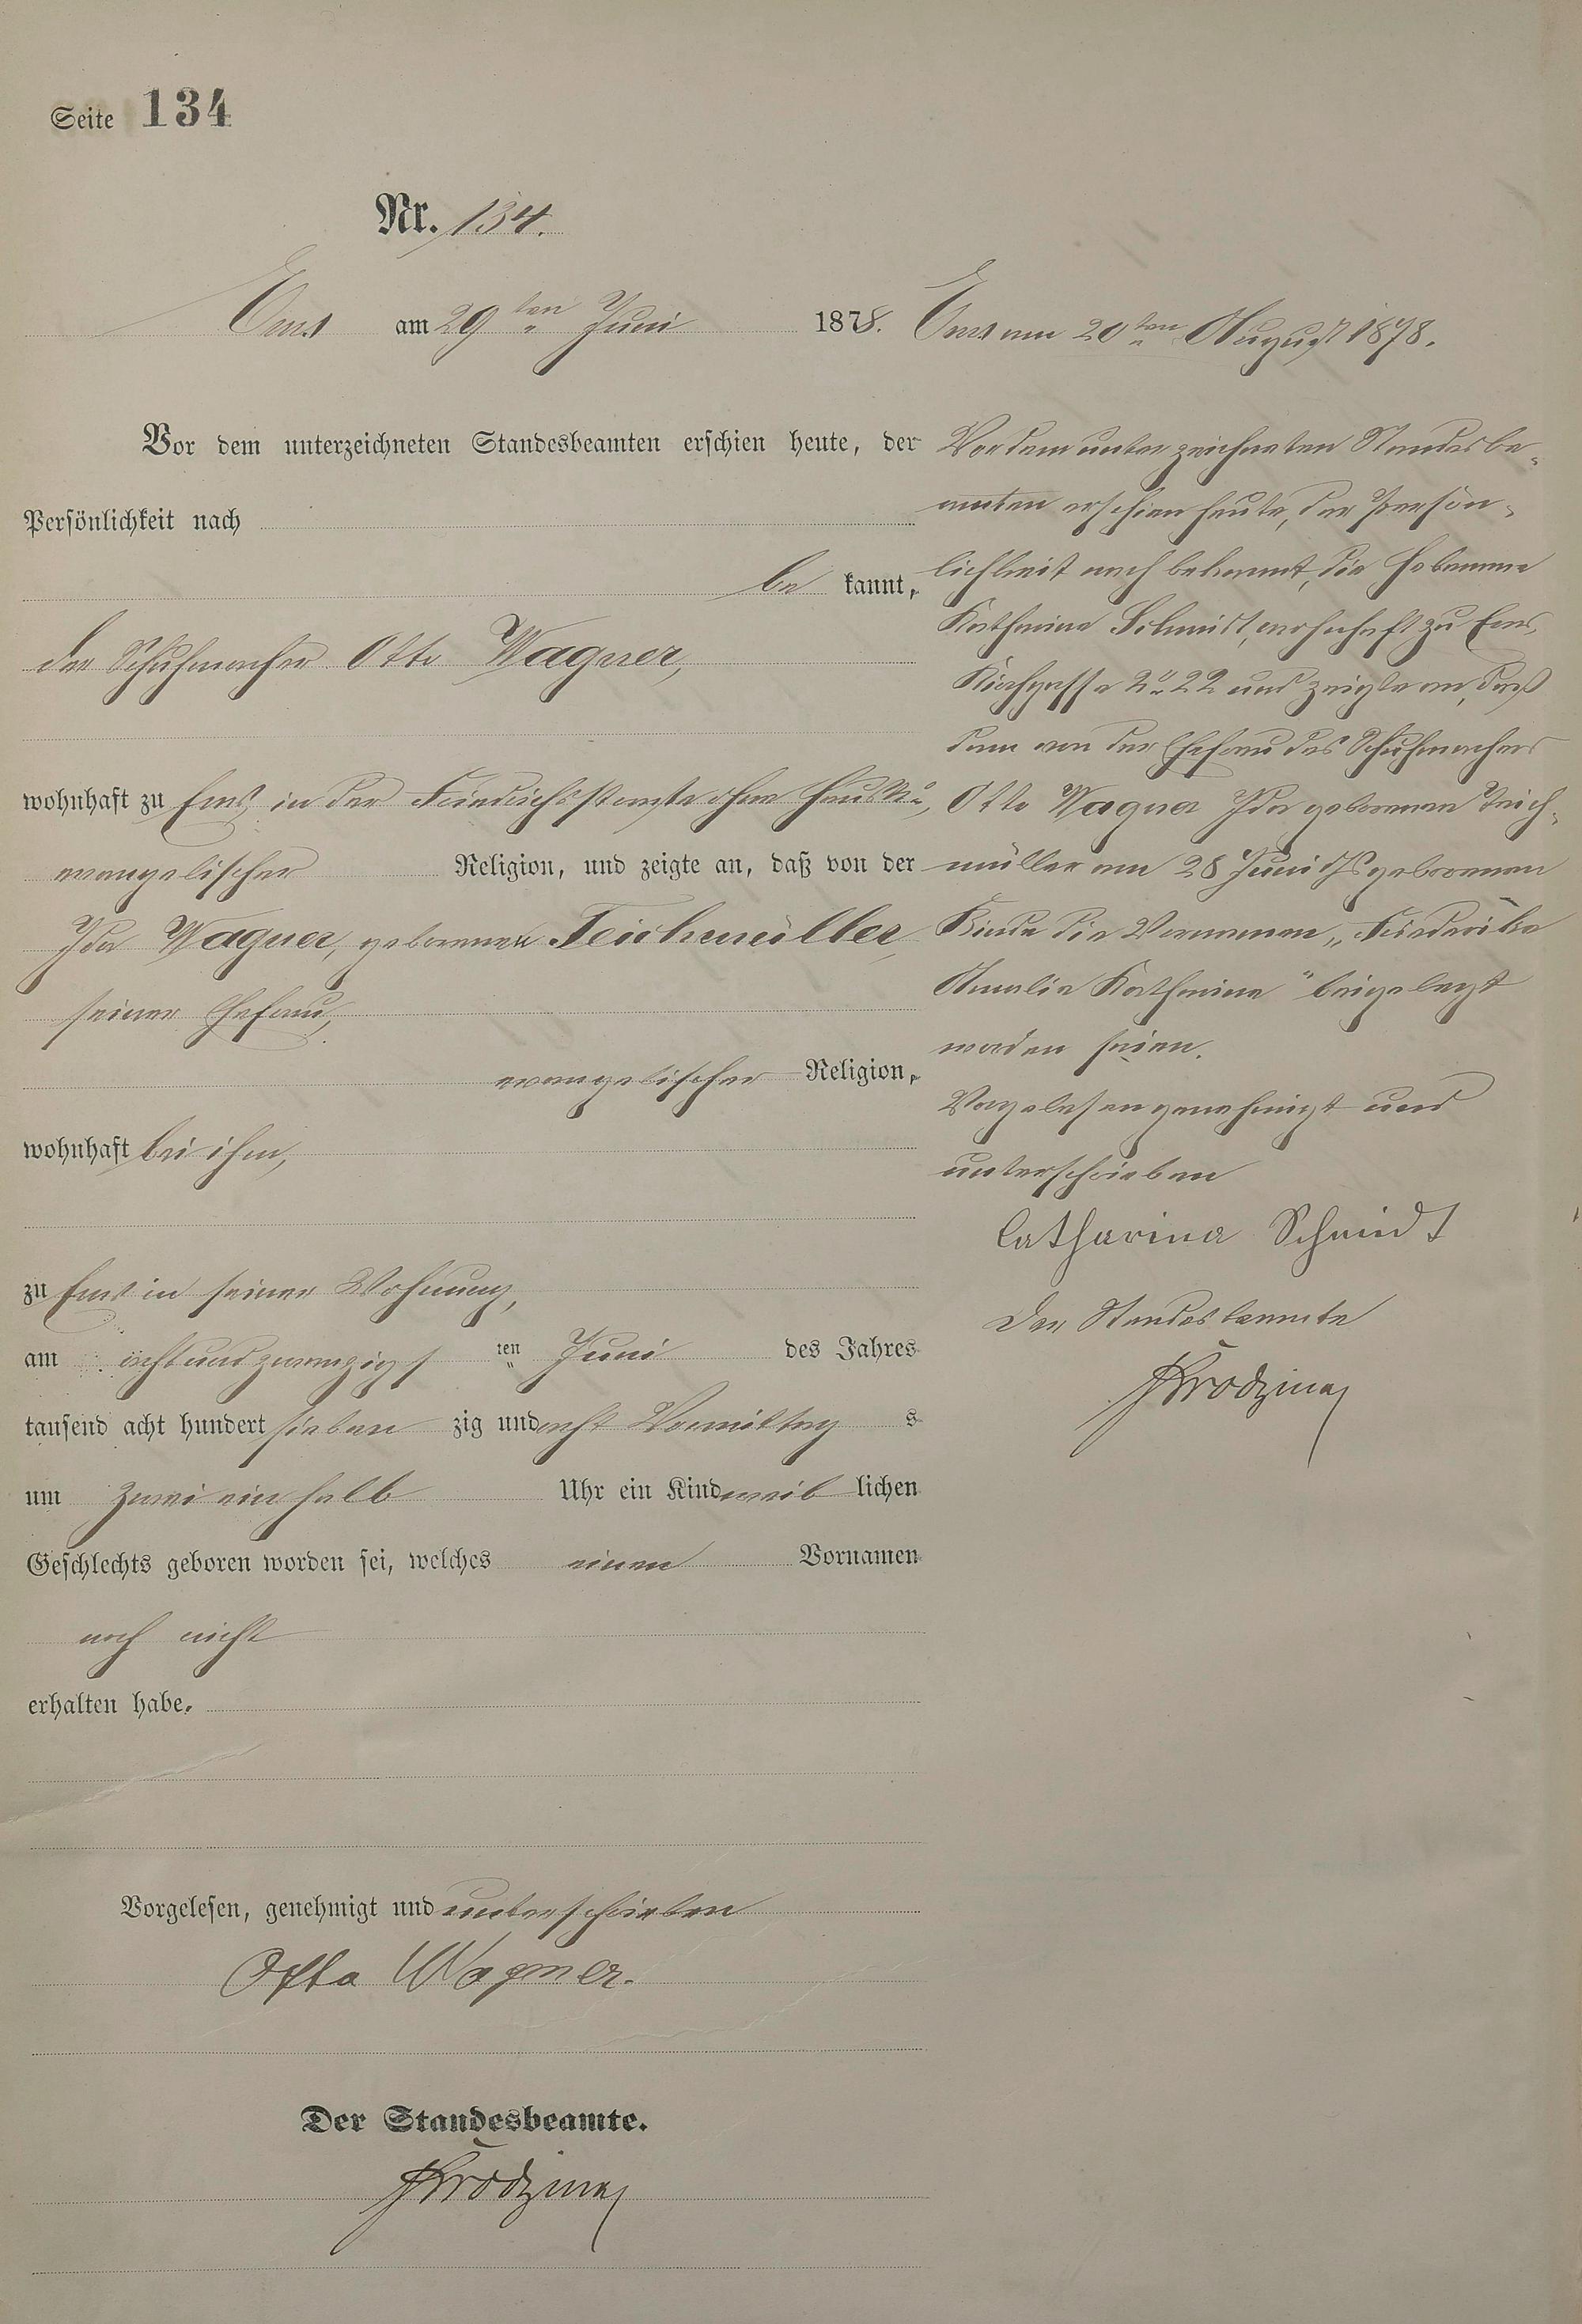 Seite 134
Nr. 134.
Ems am 29ten Juni 1878.
Vor dem unterzeichneten Standesbeamten erschien heute, der
Persönlichkeit nach
be kannt,
der Schuhmacher Otto Wagner,
wohnhaft zu Ems, in der Friedrichsstraße ohne Haus No,
evangelischer Religion, und zeigte an, daß von der
Ida Wagner, geborenen Teichmüller,
seiner Ehefrau,
evangelischer Religion,
wohnhaft bei ihm,
zu Ems in seiner Wohnung,
am achtundzwanzigsten Juni des Jahres
tausend acht hundert sieben zig und acht Vormittag s
um zwei ein halb Uhr ein Kind weib lichen
Geschlechts geboren worden sei, welches einen Vornamen
noch nicht
erhalten habe.
Vorgelesen, genehmigt und unterschrieben
Otto Wagner.
Der Standesbeamte.
Ems am 20ten August 1878.
Vor dem unterzeichneten Standesbe-
amten erschien heute, der Persön-
lichkeit nach bekannt, die Hebamme
Katharina Schmidt, wohnhaft zu Ems,
Kirchgasse No 22 und zeigte an, daß
dem von der Ehefrau des Schuhmachers
Otto Wagner Ida geborenen Teich-
müller am 28 Juni ds geborenen
Kinde die Vornamen "Friederike
Amalie Katharina" beigelegt
worden seien.
Vorgelesen genehmigt und
unterschrieben
Catharina Schmidt
Der Standesbeamte